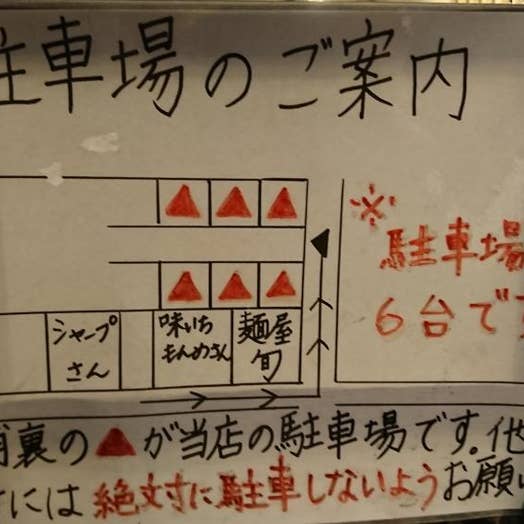 駐車場のご案内
※
駐車場
6台で
シャープ
さん
味いち
もんめさん
麺屋
旬
裏の▲が当店の駐車場です。他
には絶対に駐車しないようお願い